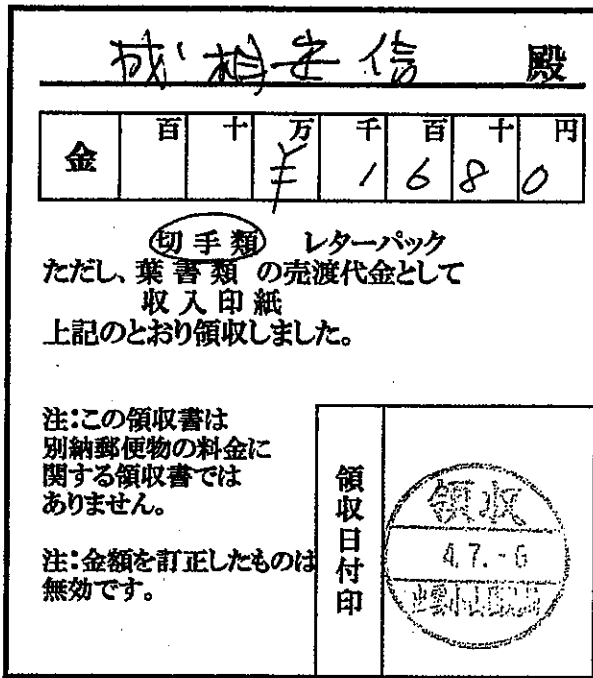 成相安信 殿
金 百 十 万 千 百 十 円
¥ 1 6 8 0
切手類 レターパック
ただし、葉書類 の売渡代金として
収入印紙
上記のとおり領収しました。
注:この領収書は
別納郵便物の料金に
関する領収書では
ありません。
注:金額を訂正したものは
無効です。
領収日付印
領収
4.7.-6